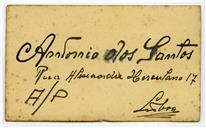 Antonio dos Santos
Rua Alexandre Herculano 17
A/P
Lisboa